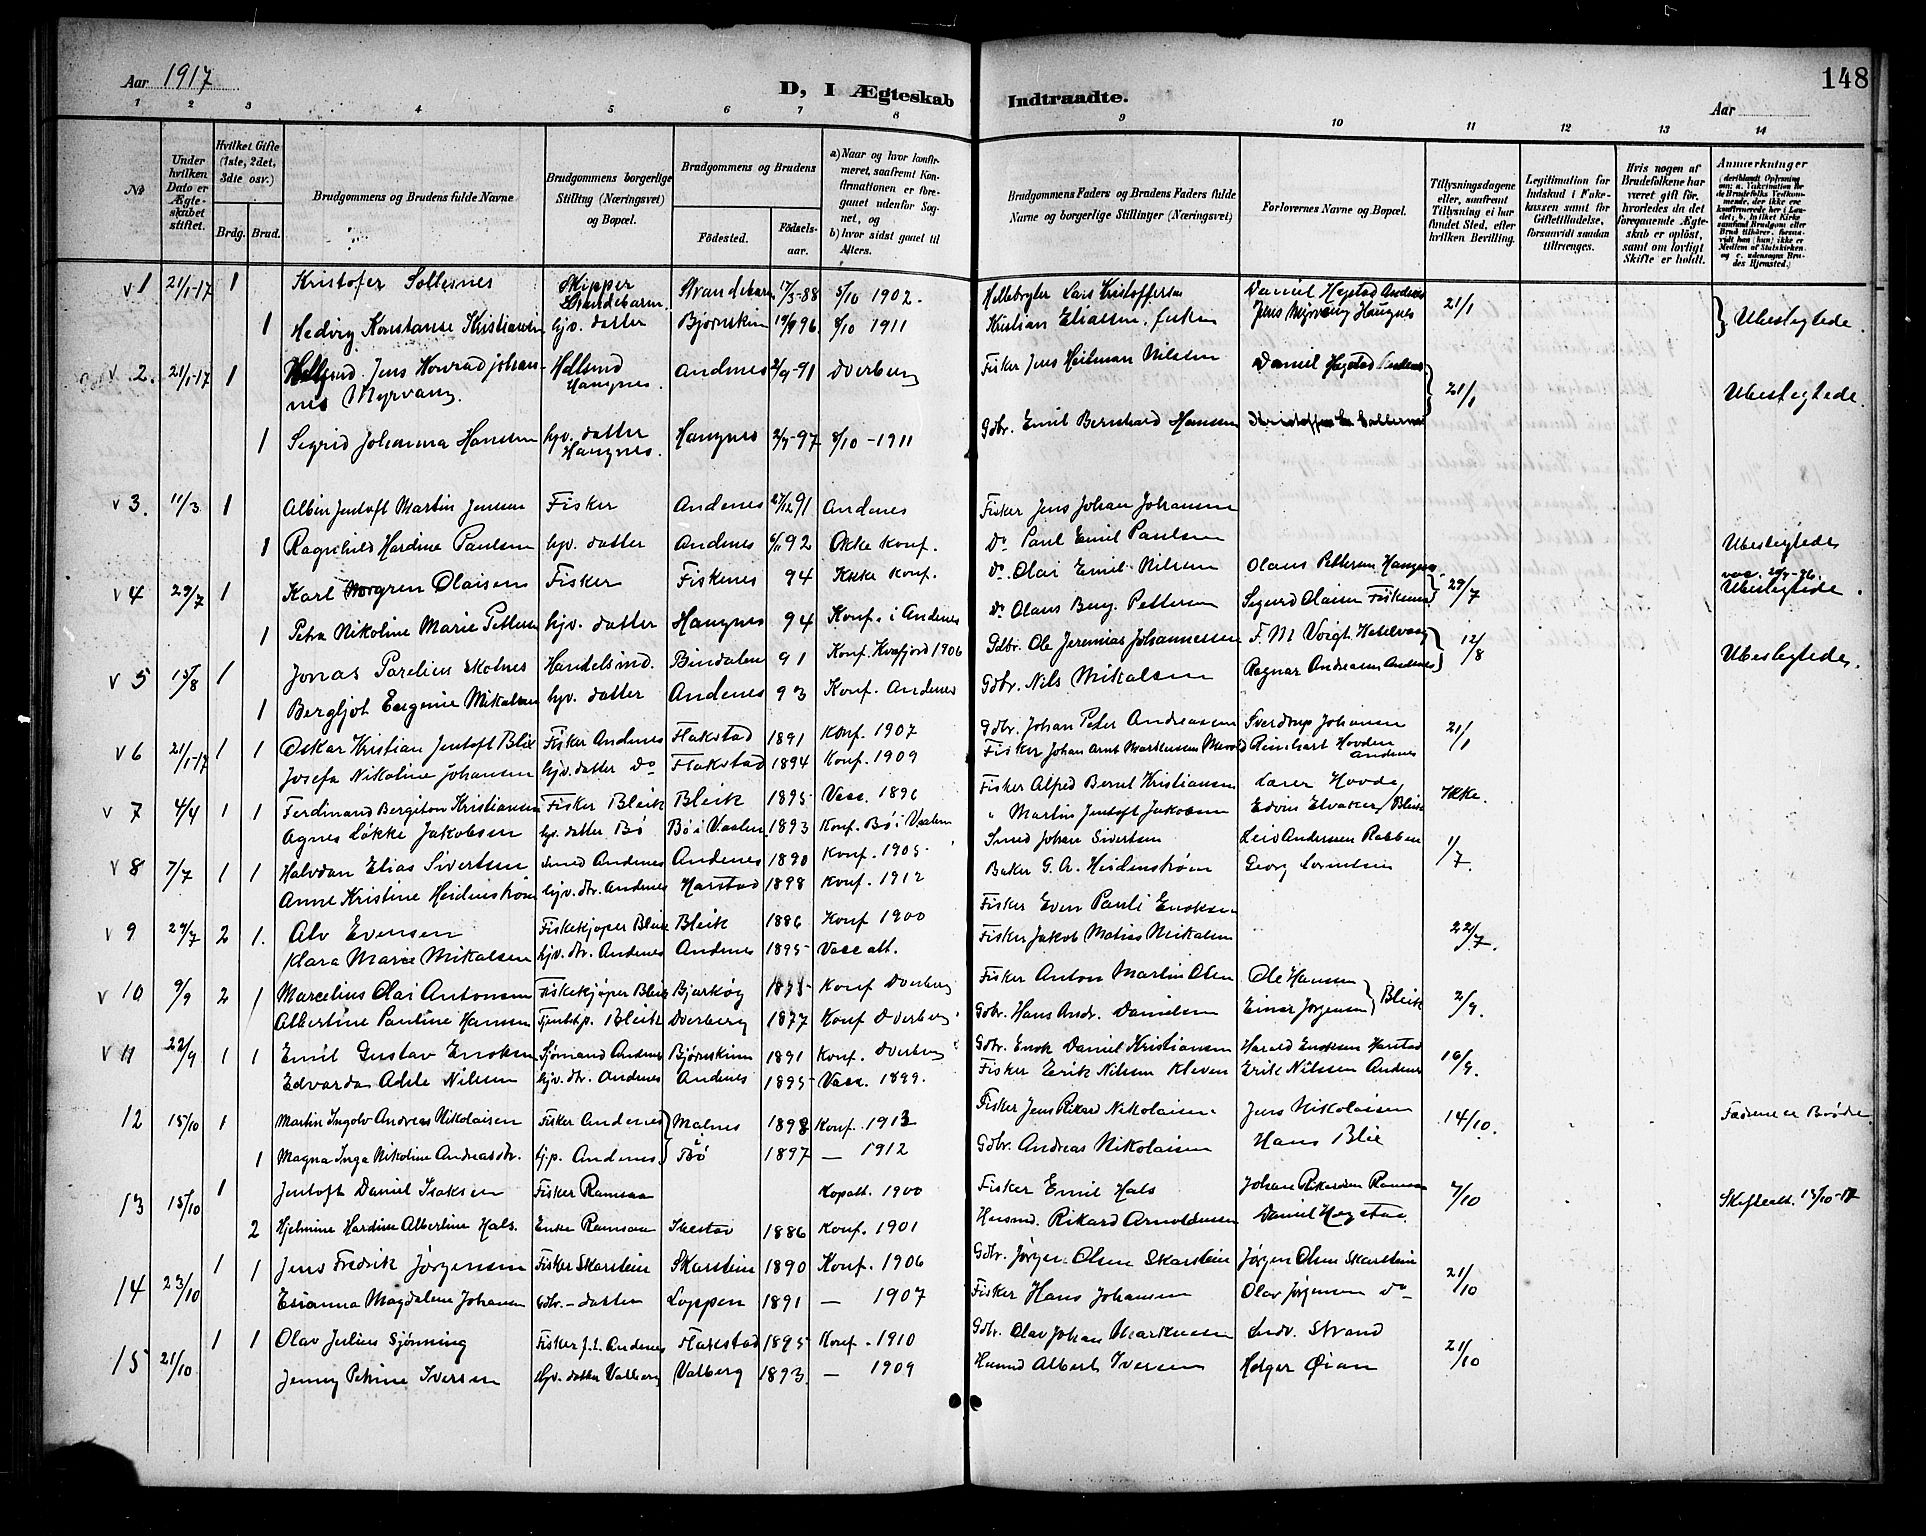 Aar 1917
D, I Ægteskab Indtraadte.
148
Aar
1 2 3 4 5 6 7 8 9 10 11 12 13 14
No
Under hvilken Dato er Ægteskabet stiftet.
Hvilket Gifte (1ste, 2det, 3die osv.)
Brdg. Brud.
Brudgommens og Brudens fulde Navne
Brudgommens borgerlige Stilling (Næringsvei) og Bopæl.
Brudgommens og Brudens
Fødested.
Fødselsaar.
a) Naar og hvor konfirmeret, saafremt Konfirmationen er foregaaet udenfor Sognet, og
b) hvor sidst gaaet til Alters.
Brudgommens Faders og Brudens Faders fulde Navne og borgerlige Stillinger (Næringsvei)
Forlovernes Navne og Bopæl.
Tillysningsdagene eller, saafremt Tillysning ei har fundet Sted, efter hvilken Bevilling.
Legitimation for Indskud i Enkekassen samt for Giftetilladelse, forsaavidt saadan tiltrænges.
Hvis nogen af Brudefolkene har været gift før, hvorledes da det foregaaende Ægteskab er opløst, samt om lovligt Skifte er holdt.
Anmærkninger
v 1 21/1-17 1 Kristofer Solternes Skipper Strandebarm Strandebarm 17/3-88 5/10 1902. Lars Kristoffersen Daniel Hegstad Andenes 21/1
1 Hedvig Konstanse Kristiansen hjv. datter Bjørnskin 19/9 96 8/10 1911 Kristian Eliassen, fisker Jens Myrvang Haugnes Ubeslegtede.
v 2. 21/1-17 1 Jens Konrad Johannes Myrvang. Haugnes. Andenes 2/9-91 Dverberg Fisker Jens Heitman Nilsen Daniel Hegstad Andenes 21/1 Ubeslegtede.
1 Sigrid Johanna Hansen hjv. datter Haugnes. Haugnes 2/7-97 8/10-1911 Gdbr. Emil Bernhard Hansen
v 3. 11/3 1 Albin Jentoft Martin Jensen Fisker Andenes 27/12 91 Andenes Fisker Jens Johan Johansen
1 Ragnhild Hardine Paulsen hjv. datter Andenes 6/11 92 Okke konf. Do Paul Emil Paulsen Ubeslegtede
v 4 29/7 1 Karl Norgren Olaisen Fisker Fiskenes 94 Ikke konf. do. Olai Emil Nilsen Olaus Pettersen Haugnes 29/7 vac. 29/9-96. Ubeslegtede.
1 Petra Nikoline Marie Pettersen hjv. datter Haugnes 94 Konf. i Andenes Do Olaus Berg. Pettersen Sigurd Olaisen Fiskenes
v 5 15/8 1 Jonas Parelius Skolnes Handelsind. Bindalen 91 Konf. Kvæfjord 1906 Gdbr. Ole Jeremias Johannessen F. M Voigt 12/8 Ubeslegtede.
1 Bergljot Eugenie Mikalsen hjv. datter Andenes 93 Konf. Andenes Gdbr. Nils Mikalsen Ragnar Andreasen Andenes
v 6 21/1-17 1 1 Oskar Kristian Jentoft Blix Fisker Andenes Flakstad 1891 Konf. 1907 Gdbr. Johan Peter Andreassen Sverdrup Johansen 21/1
Josefa Nikoline Johansen hjv. datter Do Flakstad 1894 Konf. 1909 Fisker Johan Arnt Reinhart Hovden Andenes
v 7 4/4 1 1 Ferdinand Bergiton Kristiansen Fisker Bleik Bleik 1895 Vacc. 1896 Fisker Alfred Bernt Kristiansen Lærer Hovde Ikke.
Agnes Løkke Jakobsen hjv. datter Bø Bø i Vesaalen 1893 Konf. Bø i Vesaalen " Martin Jentoft Jakobsen Edvin Elvaker / Bleik
v 8 7/7 1 1 Halvdan Elias Sivertsen Smed Andenes Andenes 1890 Konf. 1905 Smed Johan Sivertsen Leiv Andersen Rabben 1/7.
Anne Kristine Heidenstrøm hjv. dtr. Andenes Harstad 1898 Konf. 1912 Baker G. A. Heidenstrøm Georg Lorentsen
v 9 29/7 2 1. Alv Evensen Fiskekjøper Bleik Bleik 1886 Konf 1900 Fisker Even Pauli Enoksen 22/7.
Klara Marie Mikalsen hjv. dtr. Andenes Andenes 1895 Vacc att. Fisker Jakob Matias Mikalsen
v 10 9/9 2 1 Marcelius Olai Antonsen Fiskekjøper Bleik Bjarkøy 1875 Konf Dverberg Fisker Anton Martin Olsen Ole Hansen } Bleik 2/9.
Albertine Pauline Hansen Bleik Dverberg 1877 Konf Dverberg Gdbr. Hans Andr. Danielsen Einar Jørgensen
v 11 22/9 1 1 Emil Gustav Enoksen Sjømand Andenes Bjørnskinn 1891 Konf. Dverberg Gdbr. Enok Daniel Kristiansen Harald Enoksen Harstad 16/9.
Edvarda Adele Nilsen hjv. dtr. Andenes Andenes 1895 Vacc. 1899. Fisker Erik Nilsen Kleven Erik Nilssen Andenes
12 15/10 1 Martin Ingolv Andreas Nikolaisen Fisker Andenes Malnes 1893 Konf. 1913 Fisker Jens Rikard Nikolaisen Jens Nikolaisen 14/10. Fædrene er Brødre
1 Magna Inga Nikoline Andreasdtr. hj.p. Andenes. Bø 1897 — 1912 Gdbr. Andreas Nikolaisen Hans Blix
13 15/10 1 Jentoft Daniel Isaksen Fisker Ramsaa Kopatt. 1900 Fisker Emil Hals Johan Rikardsen Ramsaa 7/10 Skifteatt. 13/10-17
2 Hjelmine Hardine Albertine Hals. Enke Ramsaa 1886 Konf. 1901 Husmd. Rikard Arnoldussen Daniel Hegstad.
14 23/10 1 1 Jens Fredrik Jørgensen Fisker Skarstein Skarstein 1890 Konf. 1906 Gdbr. Jørgen Olsen Skarstein Jørgen Olsen Skarstein 21/10
Esianna Magdalene Johansen Gdbr.-datter Loppen 1891 — 1907 Fisker Hans Johansen Olav Jørgensen Do
15 21/10 1 1 Olav Julius Sjønning Fisker Andenes Flakstad 1895 Konf. 1910 Gdbr. Olav Johan Markussen Ludv. Strand 21/10
Jenny Petrine Iversen Hjv. datter Valberg Valberg 1893. — 1909 Husmd Albert Iversen Holger Qian